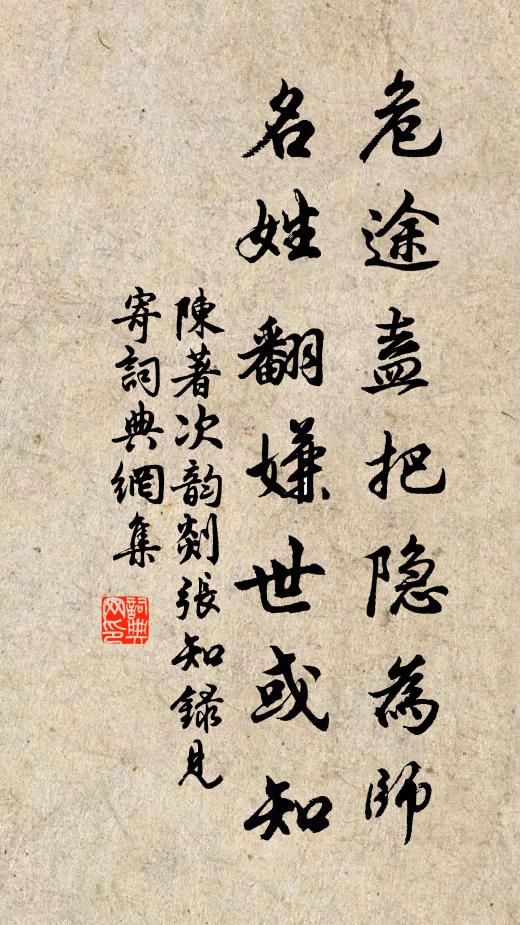 危途盍把隐為師
名姓翻嫌世或知
陳著次韵剡張知録見
寄詞典網集
詞典
网印